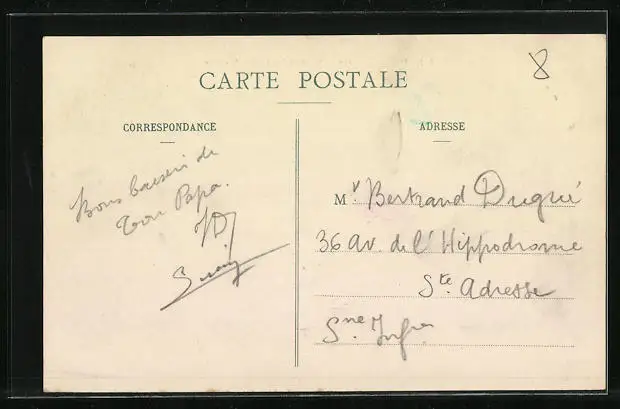 8
CARTE POSTALE
CORRESPONDANCE
ADRESSE
Bons baisers de
Ton Papa.
Mr Bertrand Dugué
36 av. de l'Hippodrome
Ste Adresse
Sne Infre